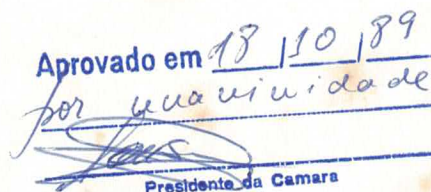 Aprovado em 18/10/89
por unanimidade
Presidente da Camara